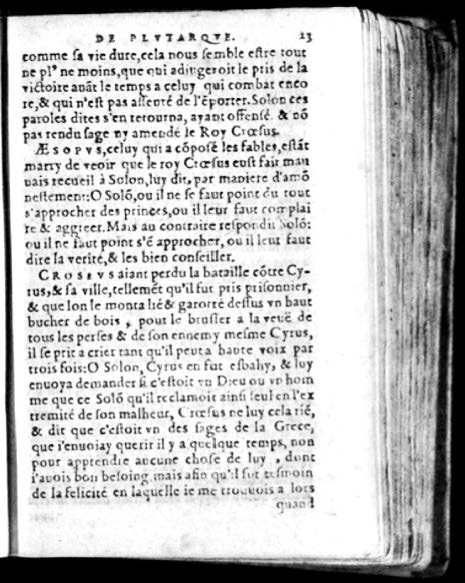 DE PLVTARQVE. 13
comme sa vie dure,cela nous semble estre tout
ne pl⁹ ne moins,que qui adiugeroit le pris de la
victoire auãt le temps a celuy qui combat enco
re,& qui n'est pas asseuré de l'ẽporter.Solon ces
paroles dites s'en retourna, ayant offensé & nõ
pas rendu sage ny amendé le Roy Crœsus.
ÆSOPVS,celuy qui a cõposé les fables,estãt
marry de veoir que le roy Crœsus eust fait mau
uais recueil à Solon,luy dit,par maniere d'amõ
nestement:O Solõ,ou il ne se faut point du tout
s'approcher des princes,ou il leur faut complai
re & aggreer.Mais au contraire respondit Solõ:
ou il ne faut point s'ẽ approcher, ou il leur faut
dire la verité,& les bien conseiller.
CROSEVS aiant perdu la bataille cõtre Cy-
rus,& sa ville,tellemẽt qu'il fut pris prisonnier,
& que lon le monta lié & garotté dessus vn haut
bucher de bois , pour le brusler a la veuë de
tous les perses & de son ennemy mesme Cyrus,
il se prit a crier tant qu'il peut a haute voix par
trois fois:O Solon, Cyrus en fut esbahy, & luy
enuoya demander si c'estoit vn Dieu ou vn hom
me que ce Solõ qu'il reclamoit ainsi seul en l'ex
tremité de son malheur, Crœsus ne luy cela riẽ,
& dit que c'estoit vn des sages de la Grece,
que i'enuoiay querir il y a quelque temps, non
pour apprendre aucune chose de luy , dont
i'auois bon besoing,mais afin qu'il fut tesmoin
de la felicité en laquelle ie me trouuois a lors
quand